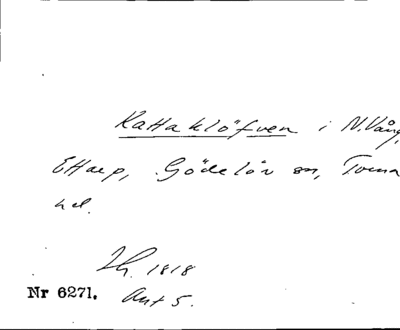 Kattaklöfven i N. Vång,
Ettarp, Gödelöv sn, Torna
hd.
Lh. 1818
Nr 6271. Akt 5.